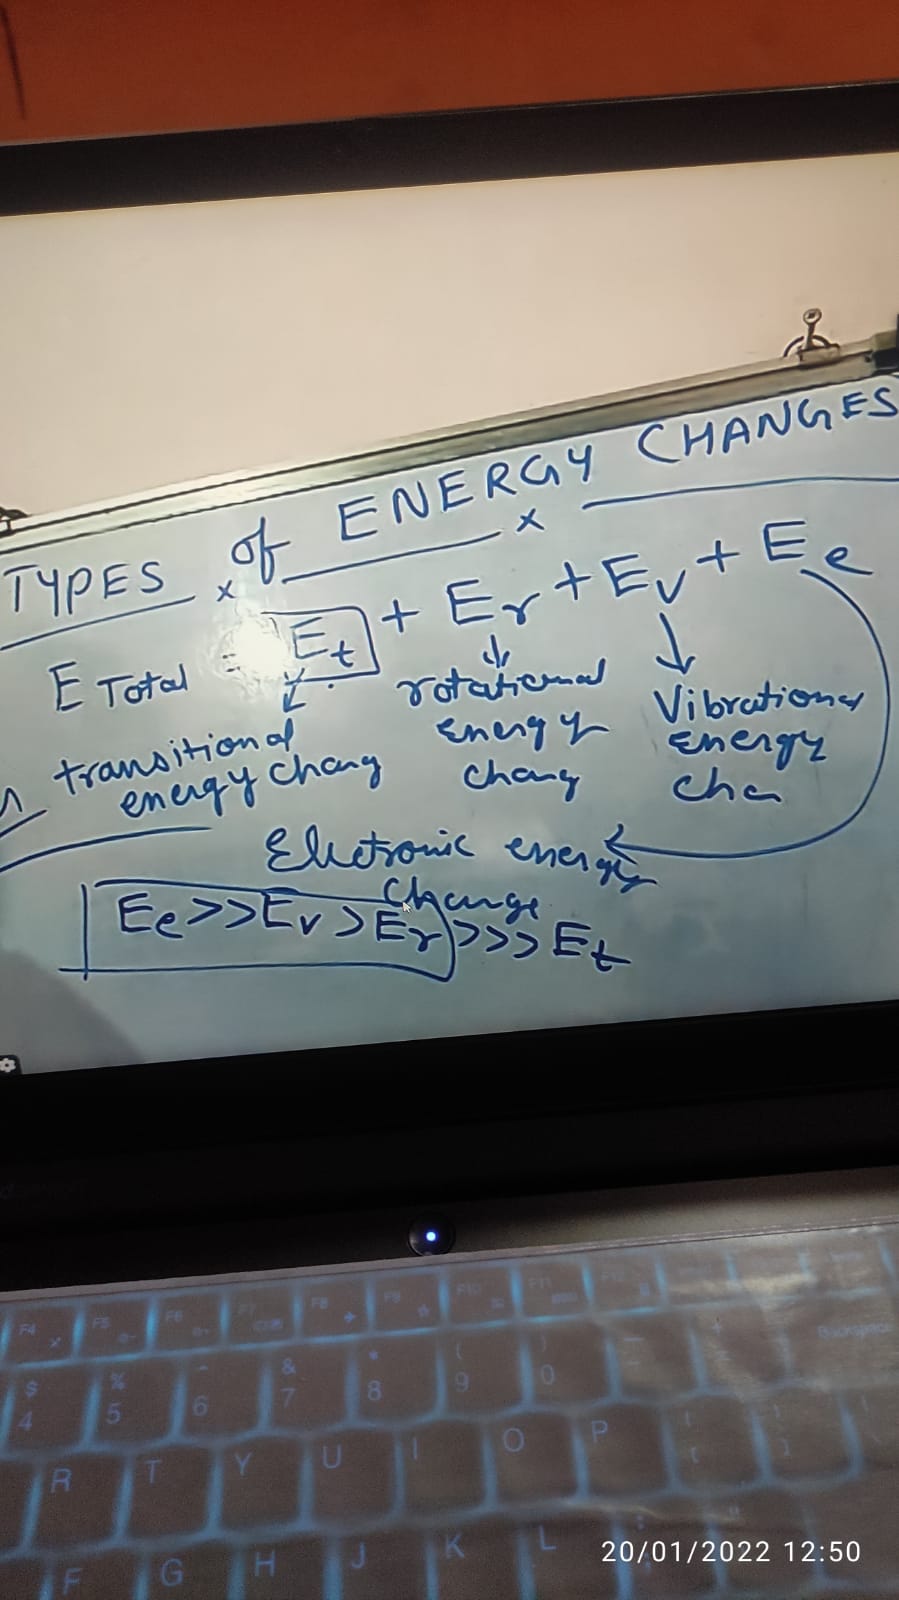 TYPES of ENERGY CHANGES
E Total = Et + Er + Ev + Ee
transitional energy chang
rotational energy chang
Vibrational energy chan
Electronic energy change
Ee >> Ev > Er >>> Et
F4 F5 F6 F7 F8 F9 F10 F11 F12
Backspace
$ 4 % 5 ^ 6 & 7 * 8 ( 9 ) 0
R T Y U I O P
F G H J K L
20/01/2022 12:50